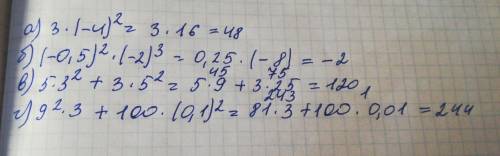 а) 3·(-4)² = 3·16=48
б) (-0,5)²·(-2)³ = 0,25·(-8)=-2
45 75
в) 5·3² + 3·5² = 5·9 + 3·25 = 120
243 1
г) 9²·3 + 100·(0,1)² = 81·3 + 100·0,01 = 244